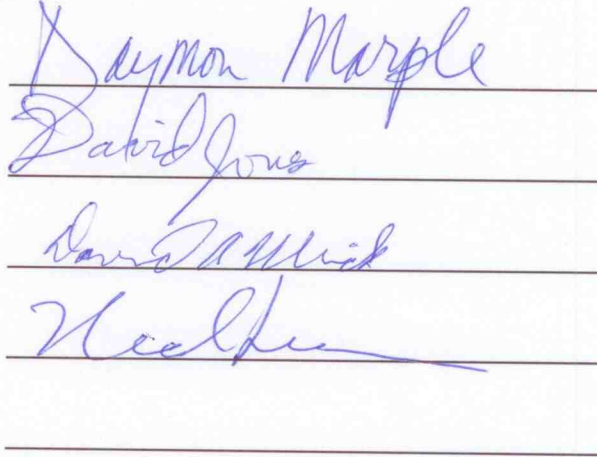 Daymon Marple
David Jones
David A
Neal